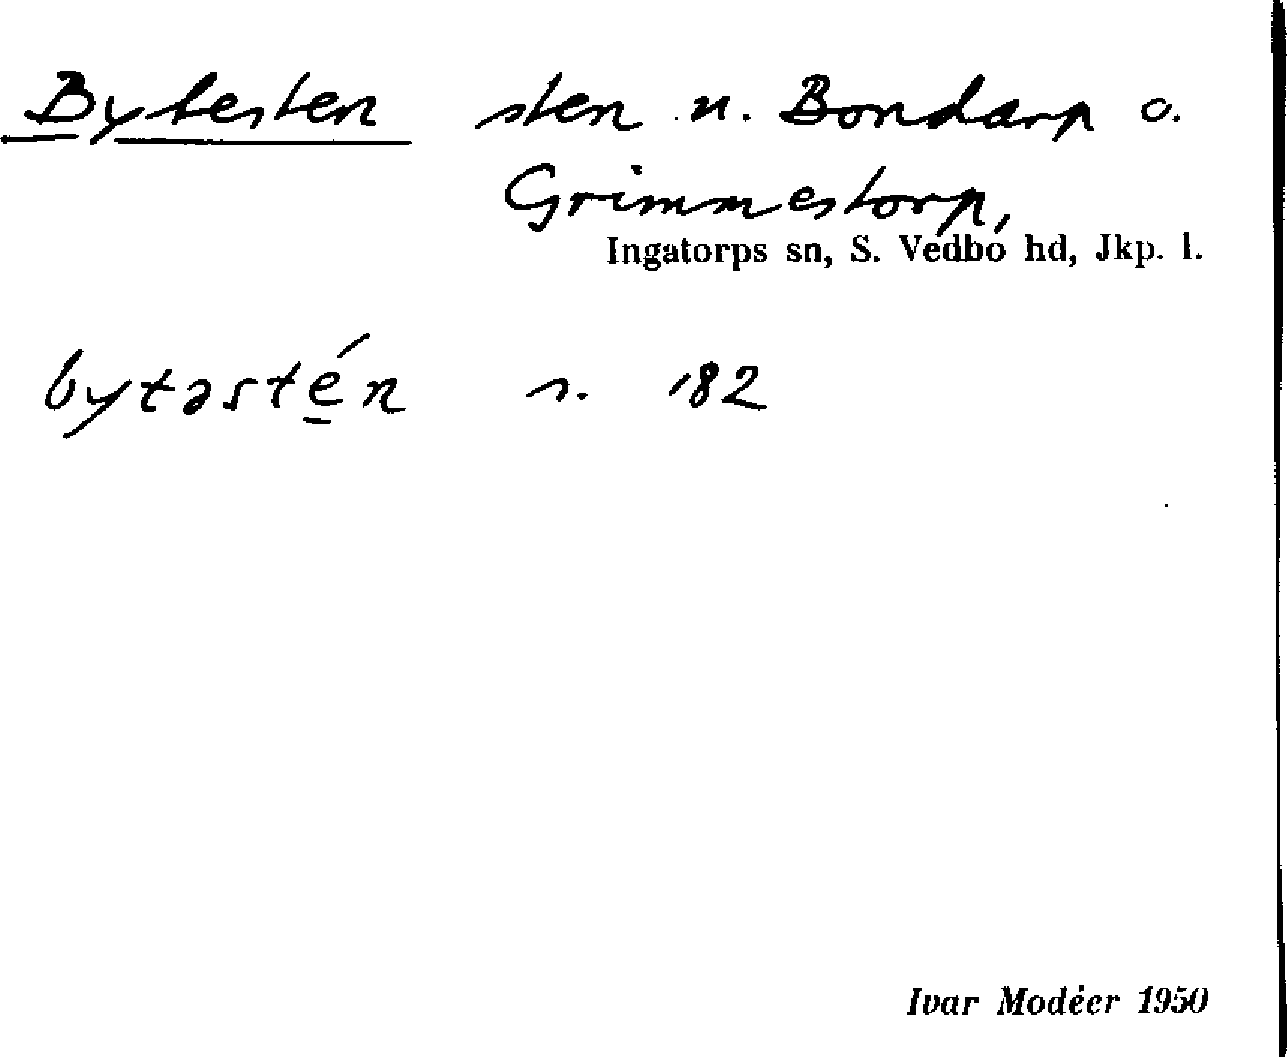 Bytesten sten n. Bondarp o.
Grimmestorp,
Ingatorps sn, S. Vedbo hd, Jkp. l.
bytəstén s. 182
Ivar Modéer 1950